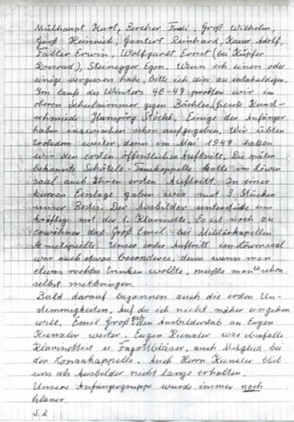 Mülhaupt Kurt, Bercher Fredi, Groß Wilhelm
Groß Heinrich, Gantert Reinhard, Kaiser Adolf,
Faller Erwin, Wolfgardt Ernst (bei Küpfer
Konrad), Steinegger Egon. Wenn ich einen oder
einige vergessen habe, bitte ich dies zu entschuldigen.
Im Laufe des Winters 48-49 probten wir im
oberen Schulzimmer gegen Büchles, heute Kunst-
schmiede Hansjörg Stöckel. Einige der Anfänger
haben inzwischen schon aufgegeben. Wir übten
trotzdem weiter, denn im Mai 1949 hatten
wir den ersten öffentlichen Auftritt. Die später
bekannte Tanzkappelle hatte im Löwen-
saal auch Ihren ersten Auftritt. In einer
kurzen Einlage gaben wir mit 3 Stücken
unser Bestes. Der Ausbilder unterstützte uns
kräftig mit der 1. Klarinette. Es ist noch zu
erwähnen das Groß Emil bei Militärkapellen
Armet spielte. Unser erster Auftritt im Löwensaal
war auch etwas besonderes, denn wenn man
etwas rechtes trinken wollte, mußte man es schon
selbst mitbringen.
Bald darauf begannen auch die ersten Un-
stimmigkeiten. Auf die ich nicht näher eingehen
will. Emil Groß gab den Ausbilderstab an Eugen
Kunzler weiter. Eugen Kunzler war ebenfalls
Klarinettist u. Fagottbläser, auch Mitglied bei
der Konzertkappelle. Auch Herrn Kunzler blieb
uns als Ausbilder nicht lange erhalten.
Unsere Anfängergruppe wurde immer noch
kleiner.
S. 2